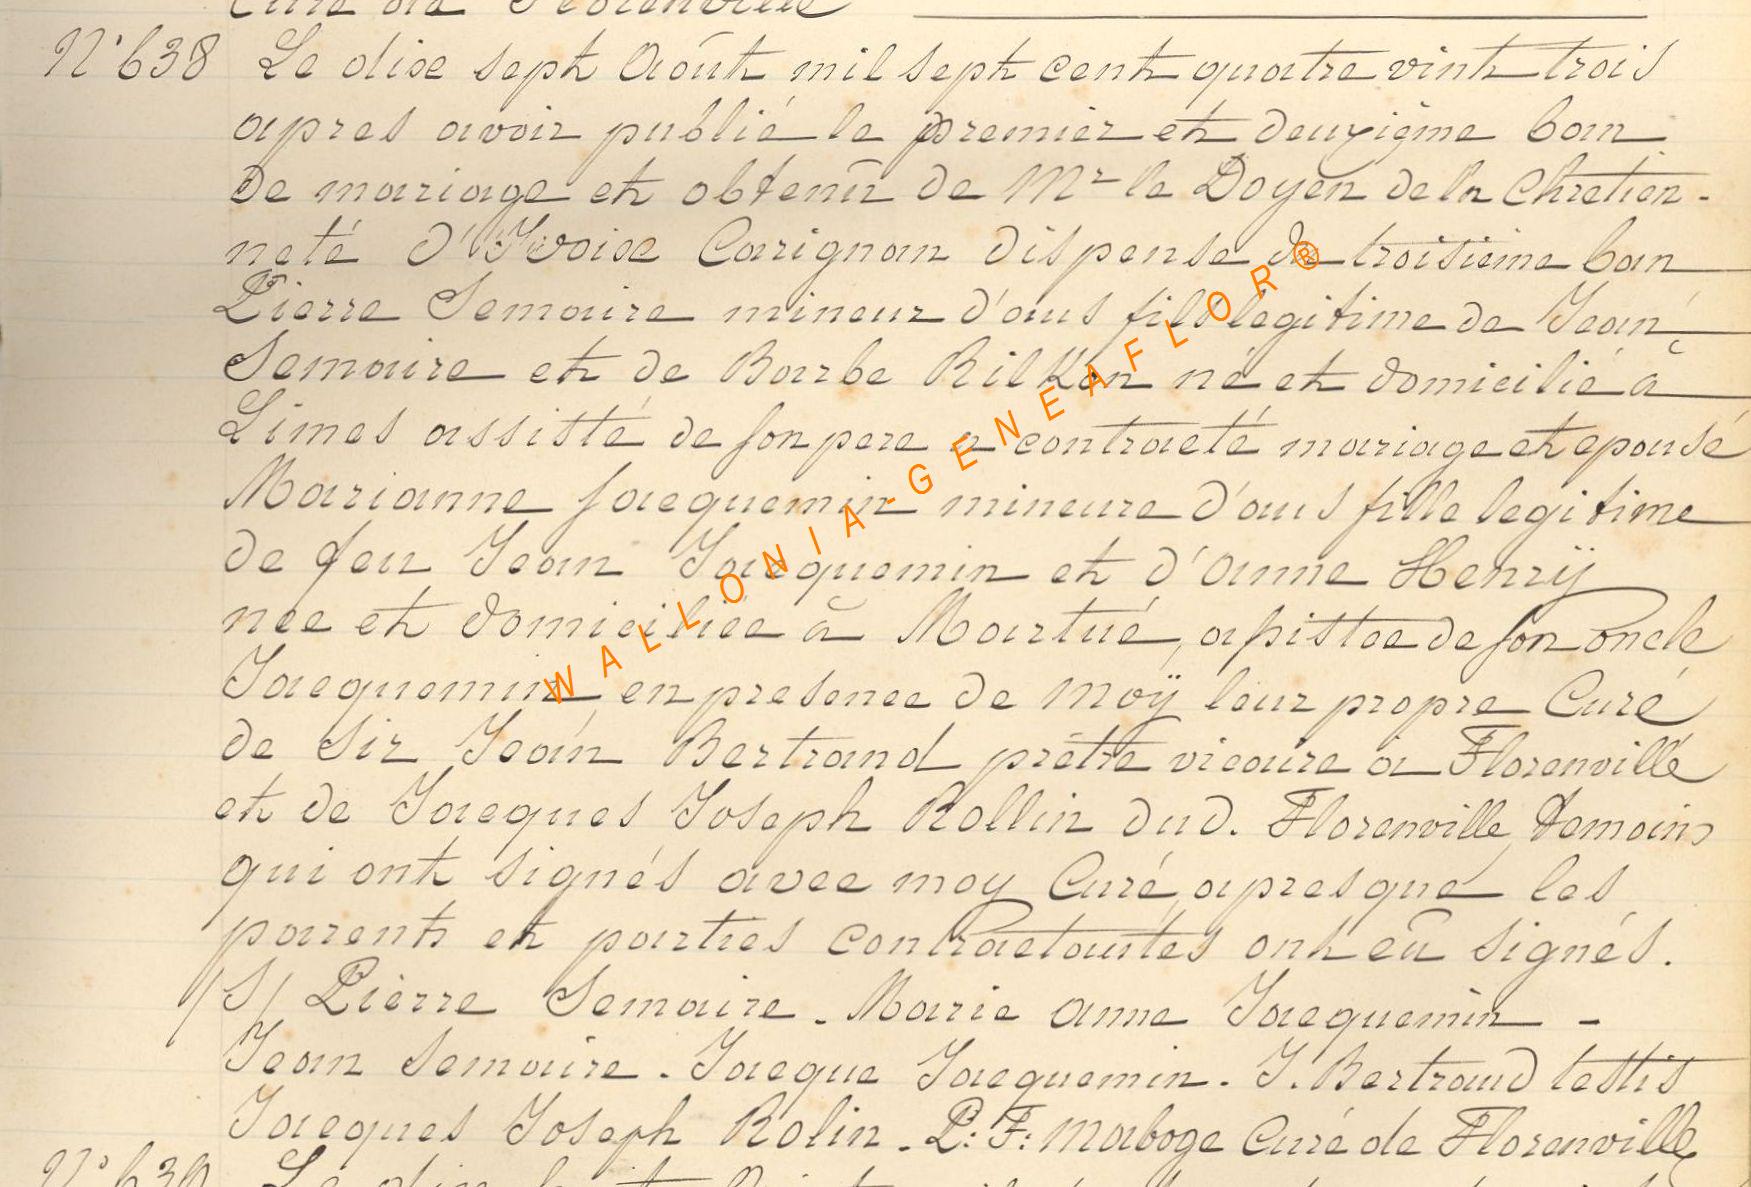 Curé de Florenville
N° 638 Le dixe sept Août mil sept cent quatre vint trois
apres avoir publié le premier et deuxieme ban
de mariage et obtenu de Mr le Doyen de la Chretien-
neté d'Ivoixe Carignan dispense du troisieme ban
Pierre Semaire mineur d'ans fils legitime de Jean
Semaire et de Barbe Rilkon né et domicilié a
Limes assisté de son pere a contracté mariage et epousé
Marianne Jacquemin mineure d'ans fille legitime
de feu Jean Jacquemin et d'Anne Henrÿ
nee et domiciliée à Martué, assistee de son oncle
Jacquemin en presence de moÿ leur propre Curé
de Sir Jean Bertrand prêtre vicaire a Florenville
et de Jacques Joseph Rollin dud. Florenville temoins
qui ont signés avec moy Curé apres que les
parents et parties contractantes ont eu signés.
/S/ Pierre Semaire - Marie Anne Jacquemin -
Jean Semaire - Jacque Jacquemin - J. Bertrand testis
Jacques Joseph Rolin - P: F: Maboge Curé de Florenville
N° 639 Le
WALLONIA-GENEAFLOR®